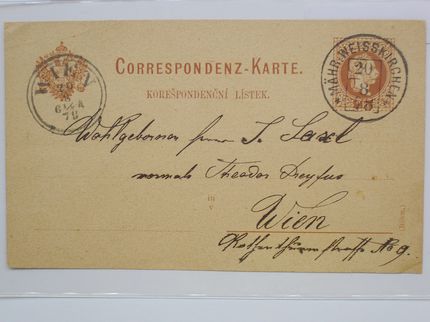 WIEN
20
8
6
78
CORRESPONDENZ-KARTE.
KOREŠPONDENČNÍ LÍSTEK.
MÄHR:WEISSKIRCHEN
20
8
Wohlgeboren Herrn J.
vormals Theodor Dreyfus
in
v
Wien
Rothenthurmstrasse No 9.
(Böhm.)